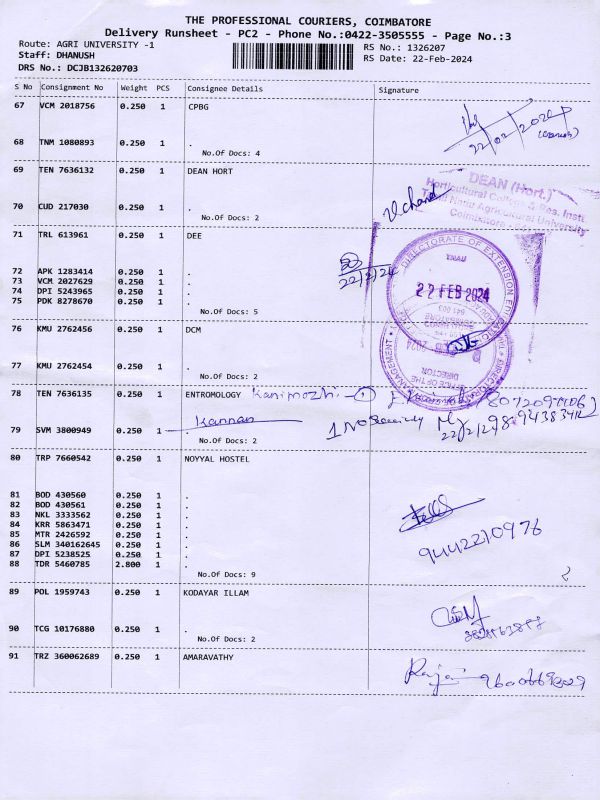 THE PROFESSIONAL COURIERS, COIMBATORE
Delivery Runsheet - PC2 - Phone No.:0422-3505555 - Page No.:3
Route: AGRI UNIVERSITY -1 RS No.: 1326207
Staff: DHANUSH RS Date: 22-Feb-2024
DRS No.: DCJB132620703
S No Consignment No Weight PCS Consignee Details Signature
67 VCM 2018756 0.250 1 CPBG
22/02/2024
68 TNM 1080893 0.250 1 .
No.Of Docs: 4
69 TEN 7636132 0.250 1 DEAN HORT
DEAN (Hort.)
Horticultural College & Res. Inst.
Tamil Nadu Agricultural University
Coimbatore
70 CUD 217030 0.250 1 .
No.Of Docs: 2
71 TRL 613961 0.250 1 DEE
DIRECTORATE OF EXTENSION
TNAU
22 FEB 2024
22/2/24
72 APK 1283414 0.250 1 .
73 VCM 2027629 0.250 1 .
74 DPI 5243965 0.250 1 .
75 PDK 8278670 0.250 1 .
No.Of Docs: 5
76 KMU 2762456 0.250 1 DCM
77 KMU 2762454 0.250 1 .
No.Of Docs: 2
78 TEN 7636135 0.250 1 ENTROMOLOGY Kanimozhi - 1
Kannan
79 SVM 3800949 0.250 1 .
No.Of Docs: 2
80 TRP 7660542 0.250 1 NOYYAL HOSTEL
81 BOD 430560 0.250 1 .
82 BOD 430561 0.250 1 .
83 NKL 3333562 0.250 1 .
84 KRR 5863471 0.250 1 .
85 MTR 2426592 0.250 1 .
86 SLM 340162645 0.250 1 .
87 DPI 5238525 0.250 1 .
88 TDR 5460785 2.800 1 .
9442210976
No.Of Docs: 9
89 POL 1959743 0.250 1 KODAYAR ILLAM
90 TCG 10176880 0.250 1 .
No.Of Docs: 2
91 TRZ 360062689 0.250 1 AMARAVATHY